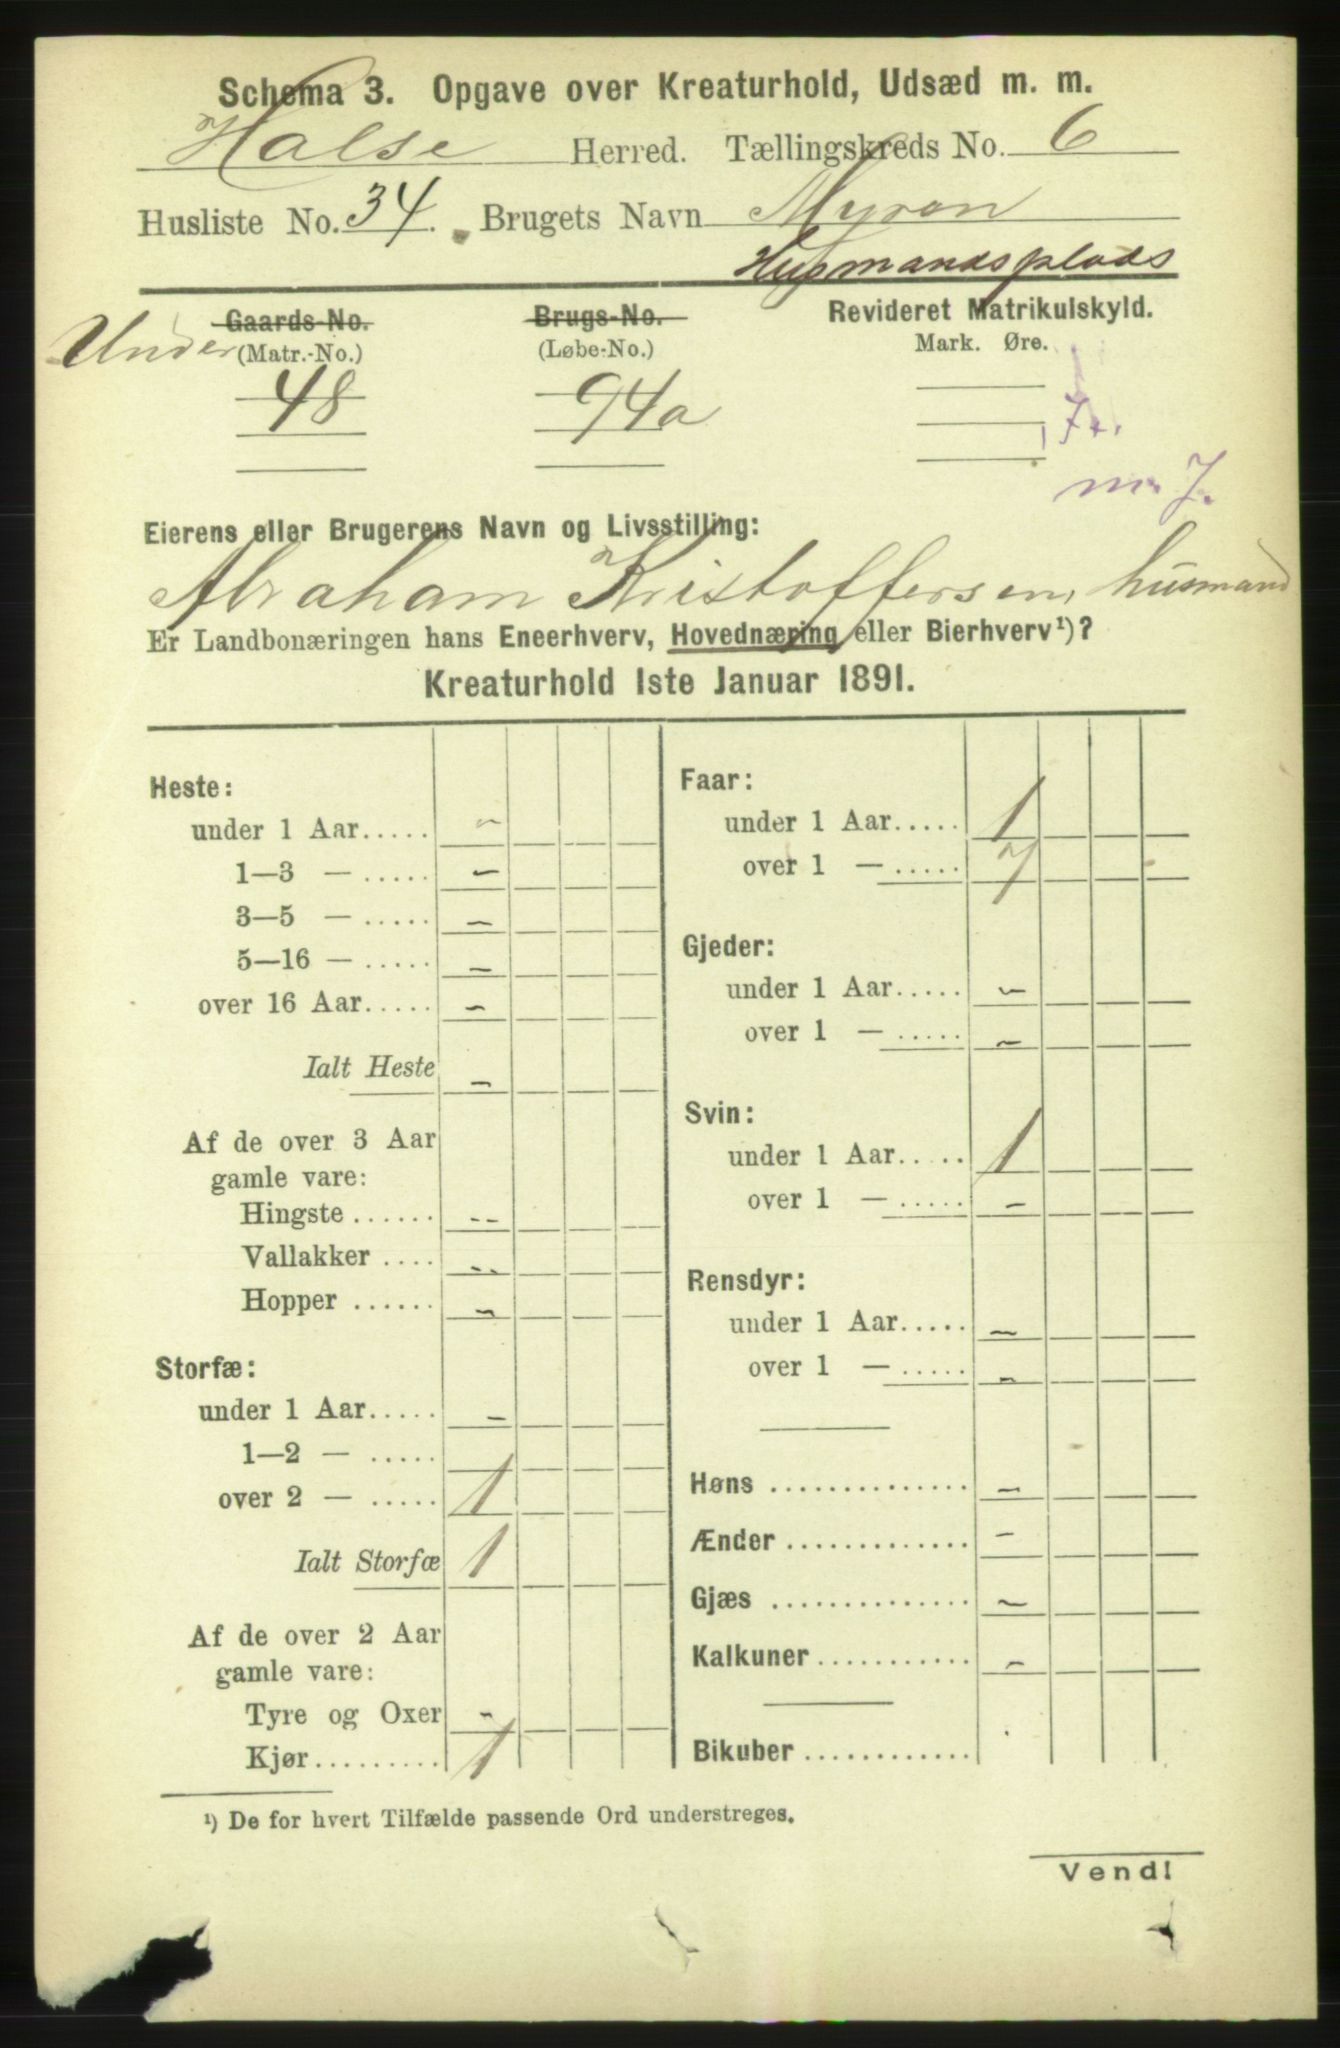 Schema 3. Opgave over Kreaturhold, Udsæd m. m.
Halse Herred. Tællingskreds No. 6
Husliste No. 34. Brugets Navn Myron
Husmandsplads
Under Gaards-No. Brugs-No. Revideret Matrikulskyld.
(Matr.-No.) (Løbe-No.) Mark. Øre.
48 94a
m. 7.
Eierens eller Brugerens Navn og Livsstilling:
Abraham Kristoffersen, husmand
Er Landbonæringen hans Eneerhverv, Hovednæring eller Bierhverv¹)?
Kreaturhold 1ste Januar 1891.
Heste:
under 1 Aar..... –
1—3 — ..... –
3—5 — ..... –
5—16 — ..... –
over 16 Aar..... –
Ialt Heste –
Af de over 3 Aar
gamle vare:
Hingste ...... --
Vallakker .... --
Hopper ...... –
Storfæ:
under 1 Aar..... –
1—2 — .....
over 2 — ..... 1
Ialt Storfæ 1
Af de over 2 Aar
gamle vare:
Tyre og Oxer –
Kjør......... 1
Faar:
under 1 Aar..... 1
over 1 — ..... 7
Gjeder:
under 1 Aar..... –
over 1 — ..... –
Svin:
under 1 Aar..... 1
over 1 — ..... –
Rensdyr:
under 1 Aar..... –
over 1 — ..... –
Høns .............. –
Ænder ............. –
Gjæs .............. –
Kalkuner ........... –
Bikuber ............
¹) De for hvert Tilfælde passende Ord understreges.
Vend!